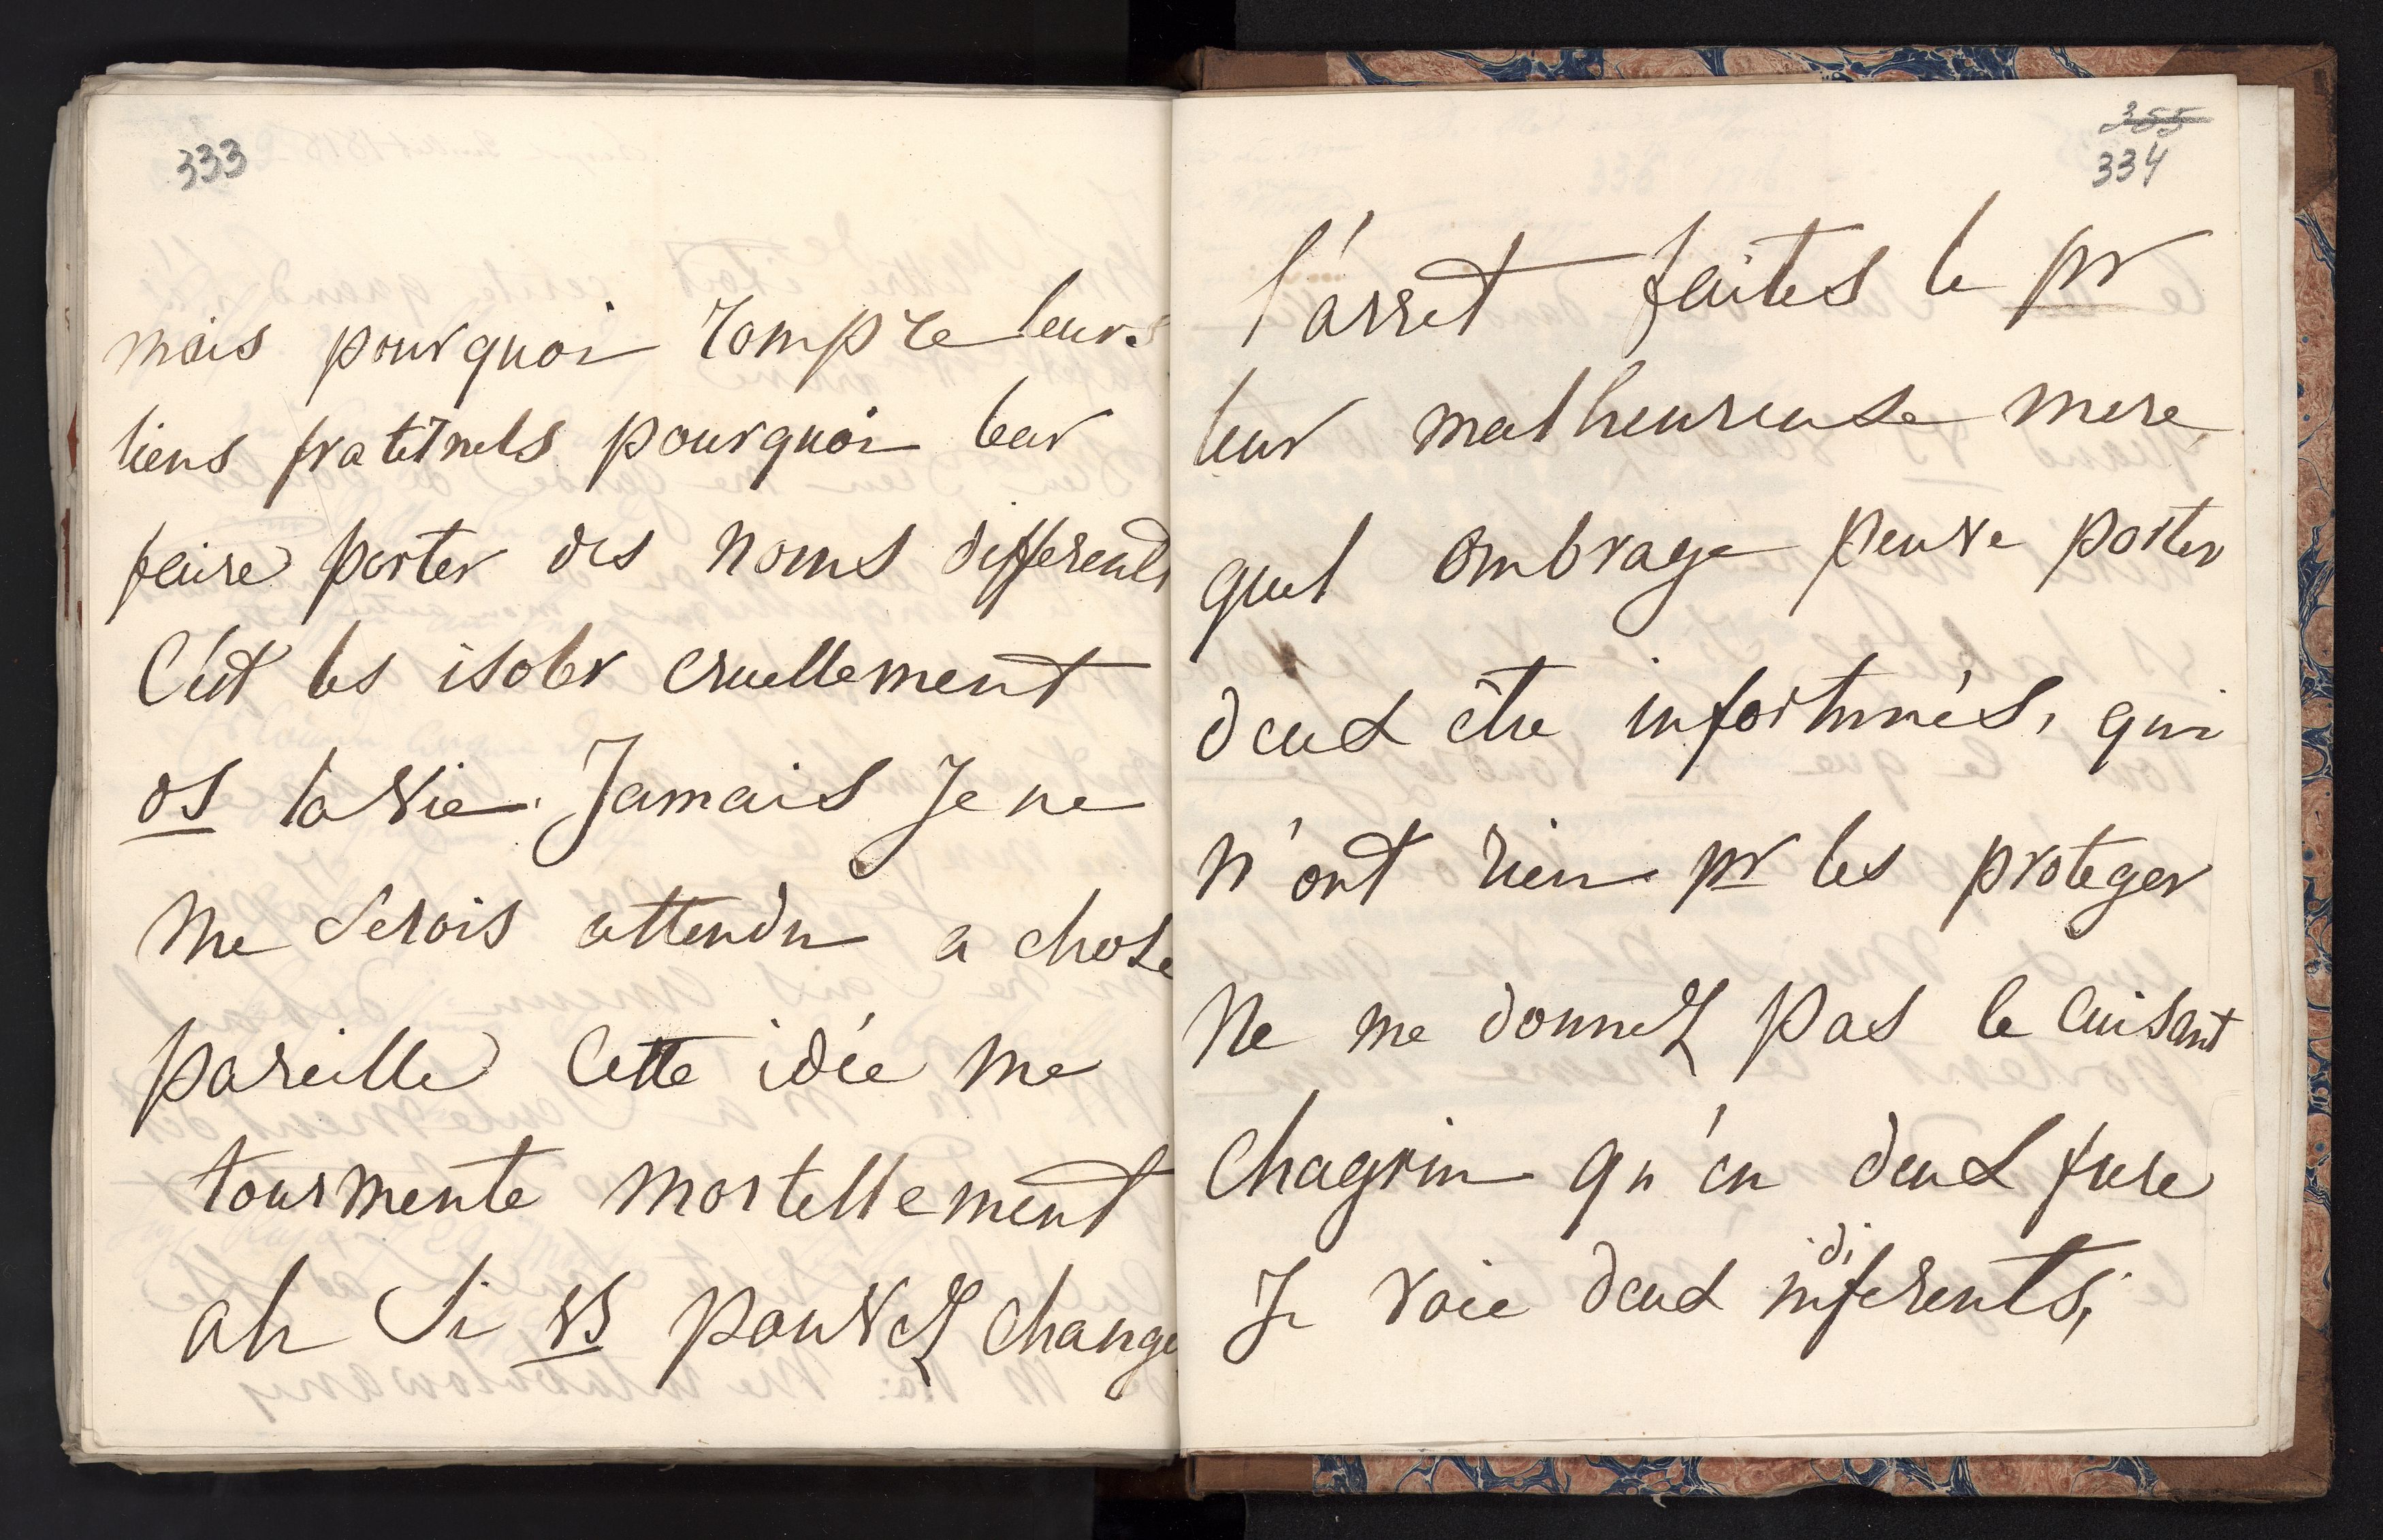 333
mais pourquoi rompre leurs
liens fraternels pourquoi leur
faire porter des noms differents
C'est les isoler cruellement
ds la vie. Jamais Je ne
me serois attendu a chose
pareille Cette idée me
tourmente mortellement
ah Si vs pouvez change
355
334
l'arret faites le pr
leur malheureuse mere,
quel ombrage peuve porter
deux être infortunés, qui
n'ont rien pr les proteger
Ne me donnez pas le cuisant
chagrin qu'en deux frere
Je voie deux indiferents,